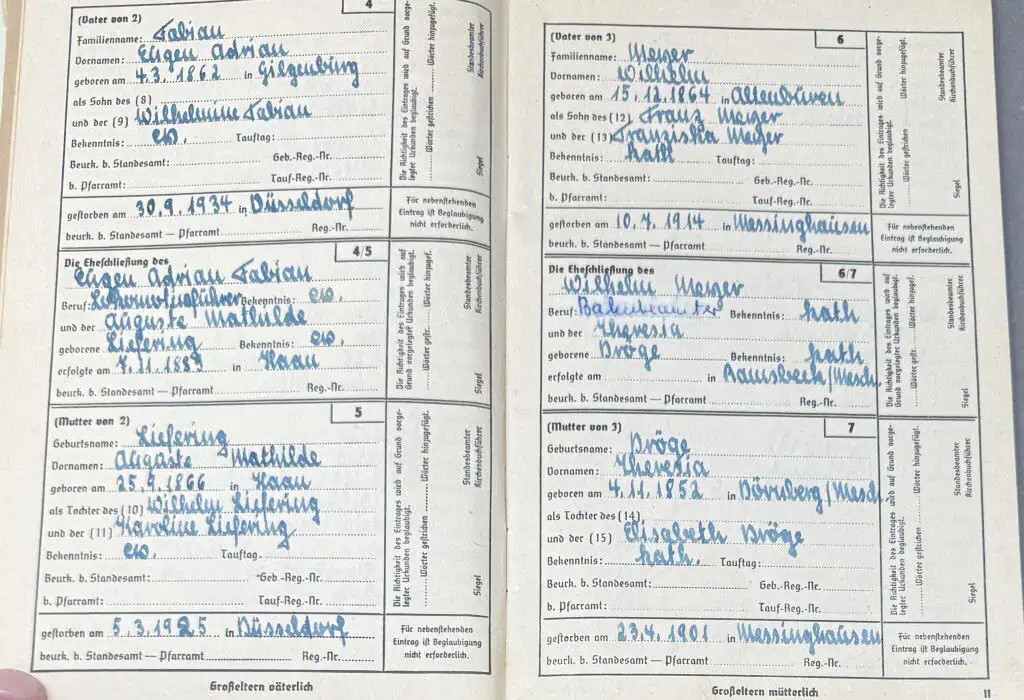 4
(Vater von 2)
Familienname: Fabian
Vornamen: Eugen Adrian
geboren am 4.3.1862 in Gilgenburg
als Sohn des (8)
und der (9) Wilhelmine Fabian
Bekenntnis: ev. Tauftag:
Beurk. b. Standesamt: Geb.-Reg.-Nr.
b. Pfarramt: Tauf-Reg.-Nr.
Die Richtigkeit des Eintrages wird auf Grund vorge-
legter Urkunden beglaubigt. Wörter gestrichen Wörter hinzugefügt.
Standesbeamter
Kirchenbuchführer
Siegel
gestorben am 30.9.1934 in Düsseldorf
beurk. b. Standesamt — Pfarramt Reg.-Nr.
Für nebenstehenden
Eintrag ist Beglaubigung
nicht erforderlich.
4/5
Die Eheschließung des
Eugen Adrian Fabian
Beruf: Lokomotivführer Bekenntnis: ev.
und der Auguste Mathilde
geborene Liefering Bekenntnis: ev.
erfolgte am 7.11.1889 in Haan
beurk. b. Standesamt — Pfarramt Reg.-Nr.
Die Richtigkeit des Eintrages wird auf
Grund vorgelegter Urkunden beglaubigt.
Wörter gestr. Wörter hinzugef.
Standesbeamter
Kirchenbuchführer
Siegel
5
(Mutter von 2)
Geburtsname: Liefering
Vornamen: Auguste Mathilde
geboren am 25.9.1866 in Haan
als Tochter des (10) Wilhelm Liefering
und der (11) Karoline Liefering
Bekenntnis: ev. Tauftag.
Beurk. b. Standesamt: Geb.-Reg.-Nr.
b. Pfarramt: Tauf-Reg.-Nr.
Die Richtigkeit des Eintrages wird auf Grund vorge-
legter Urkunden beglaubigt. Wörter gestrichen Wörter hinzugefügt.
Standesbeamter
Kirchenbuchführer
Siegel
gestorben am 5.3.1925 in Düsseldorf
beurk. b. Standesamt — Pfarramt Reg.-Nr.
Für nebenstehenden
Eintrag ist Beglaubigung
nicht erforderlich.
Großeltern väterlich
6
(Vater von 3)
Familienname: Meyer
Vornamen: Wilhelm
geboren am 15.12.1864 in Altenbüren
als Sohn des (12) Franz Meyer
und der (13) Franziska Meyer
Bekenntnis: kath Tauftag:
Beurk. b. Standesamt: Geb.-Reg.-Nr.
b. Pfarramt: Tauf-Reg.-Nr.
Die Richtigkeit des Eintrages wird auf Grund vorge-
legter Urkunden beglaubigt. Wörter gestrichen Wörter hinzugefügt.
Standesbeamter
Kirchenbuchführer
Siegel
gestorben am 10.7.1914 in Messinghausen
beurk. b. Standesamt — Pfarramt Reg.-Nr.
Für nebenstehenden
Eintrag ist Beglaubigung
nicht erforderlich.
6/7
Die Eheschließung des
Wilhelm Meyer
Beruf: Bahnbeamter Bekenntnis: kath
und der Theresia
geborene Dröge Bekenntnis: kath
erfolgte am in Ramsbeck/Mesch.
beurk. b. Standesamt — Pfarramt Reg.-Nr.
Die Richtigkeit des Eintrages wird auf
Grund vorgelegter Urkunden beglaubigt.
Wörter gestr. Wörter hinzugef.
Standesbeamter
Kirchenbuchführer
Siegel
7
(Mutter von 3)
Geburtsname: Dröge
Vornamen: Theresia
geboren am 4.11.1852 in Dörnberg/Mesch.
als Tochter des (14)
und der (15) Elisabeth Dröge
Bekenntnis: kath. Tauftag:
Beurk. b. Standesamt: Geb.-Reg.-Nr.
b. Pfarramt: Tauf-Reg.-Nr.
Die Richtigkeit des Eintrages wird auf Grund vorge-
legter Urkunden beglaubigt. Wörter gestrichen Wörter hinzugefügt.
Standesbeamter
Kirchenbuchführer
Siegel
gestorben am 23.4.1901 in Messinghausen
beurk. b. Standesamt — Pfarramt Reg.-Nr.
Für nebenstehenden
Eintrag ist Beglaubigung
nicht erforderlich.
Großeltern mütterlich
11